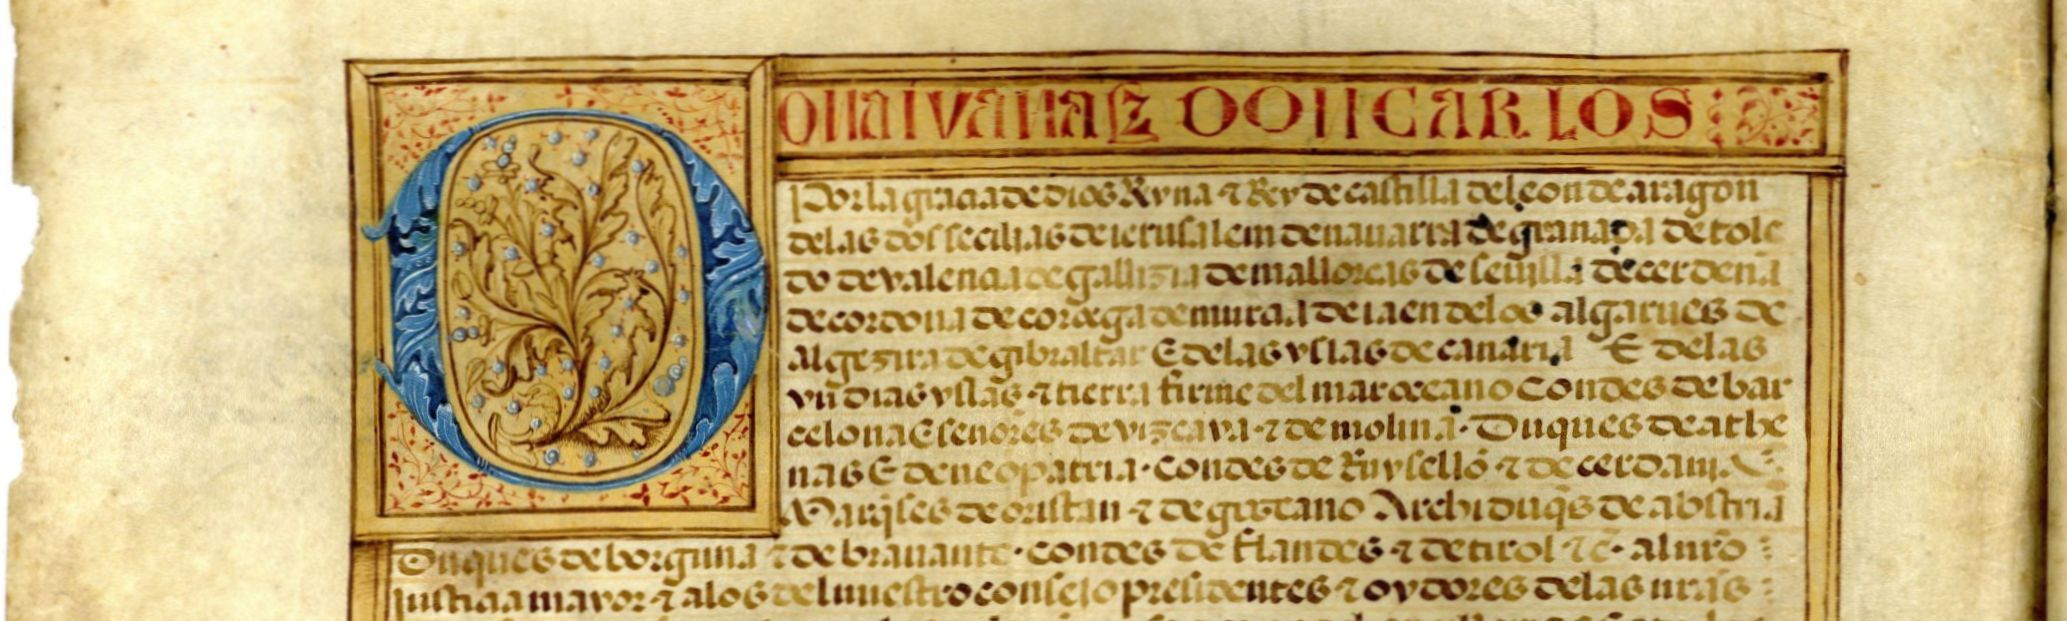 DONA IVANA & DON CARLOS
Por la gracia de dios Reyna & Rey de castilla de leon de aragon
de las dos secilias de ierusalem de nauarra de granada de tole
do de valencia de gallizia de mallorcas de seuilla de cerdeña
de cordoua de corcega de murcia de iaen de los algarues de
algezira de gibraltar E de las yslas de canaria E de las
yndias yslas & tierra firme del mar oceano Condes de bar
celona E señores de vizcaya & de molina. Duques de athe
nas E de neopatria. Condes de Ruysellō & de cerdania.
Marq̄ses de oristan & de gociano Archiduq̄s de abstria
Duques de borgoña & de brauante. condes de flandes & de tirol &c. al nr̄o
justicia mayor & a los del nuestro consejo presidentes & oydores de las nr̄as